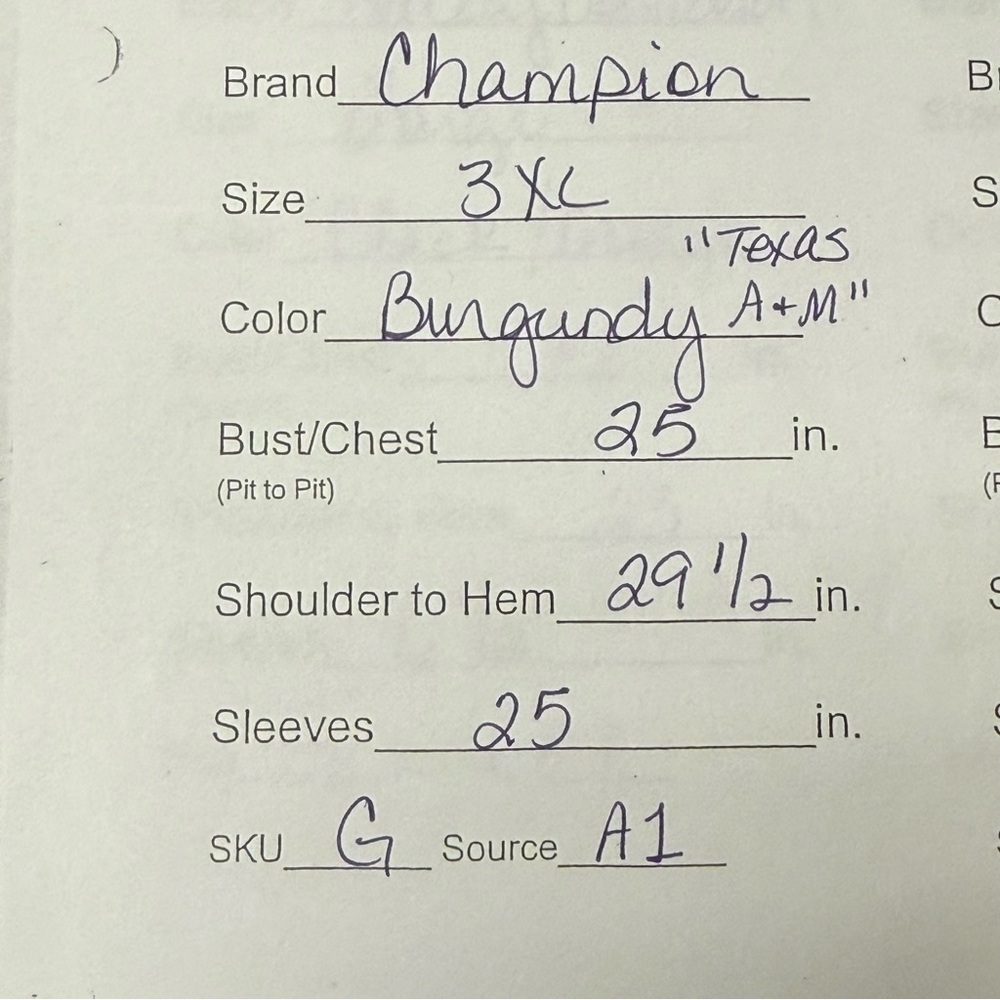 Brand Champion
Size 3XL
"Texas
Color Burgundy A+M"
Bust/Chest 25 in.
(Pit to Pit)
Shoulder to Hem 29 1/2 in.
Sleeves 25 in.
SKU G Source A1